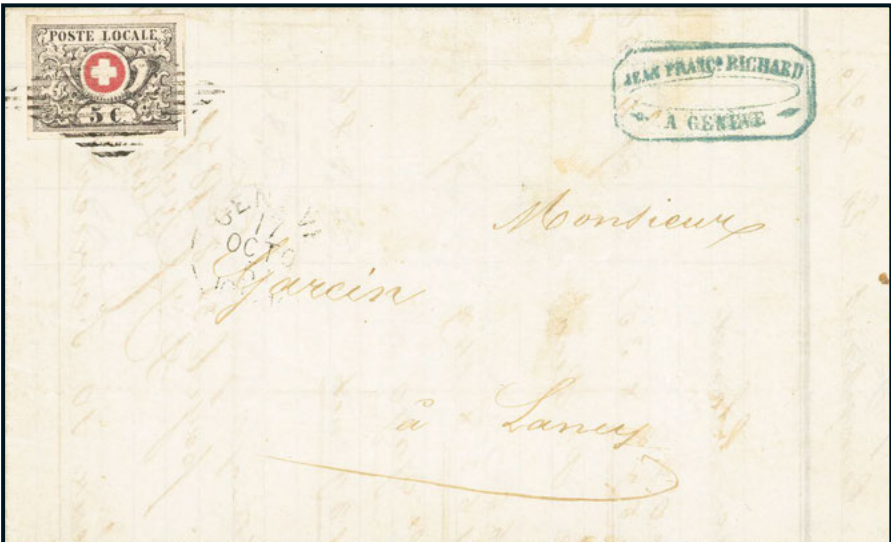 POSTE LOCALE
5 C
JEAN FRANÇS RICHARD
A GENEVE
GENEV
17
OCTO
Monsieur
Garcin
à Lancy